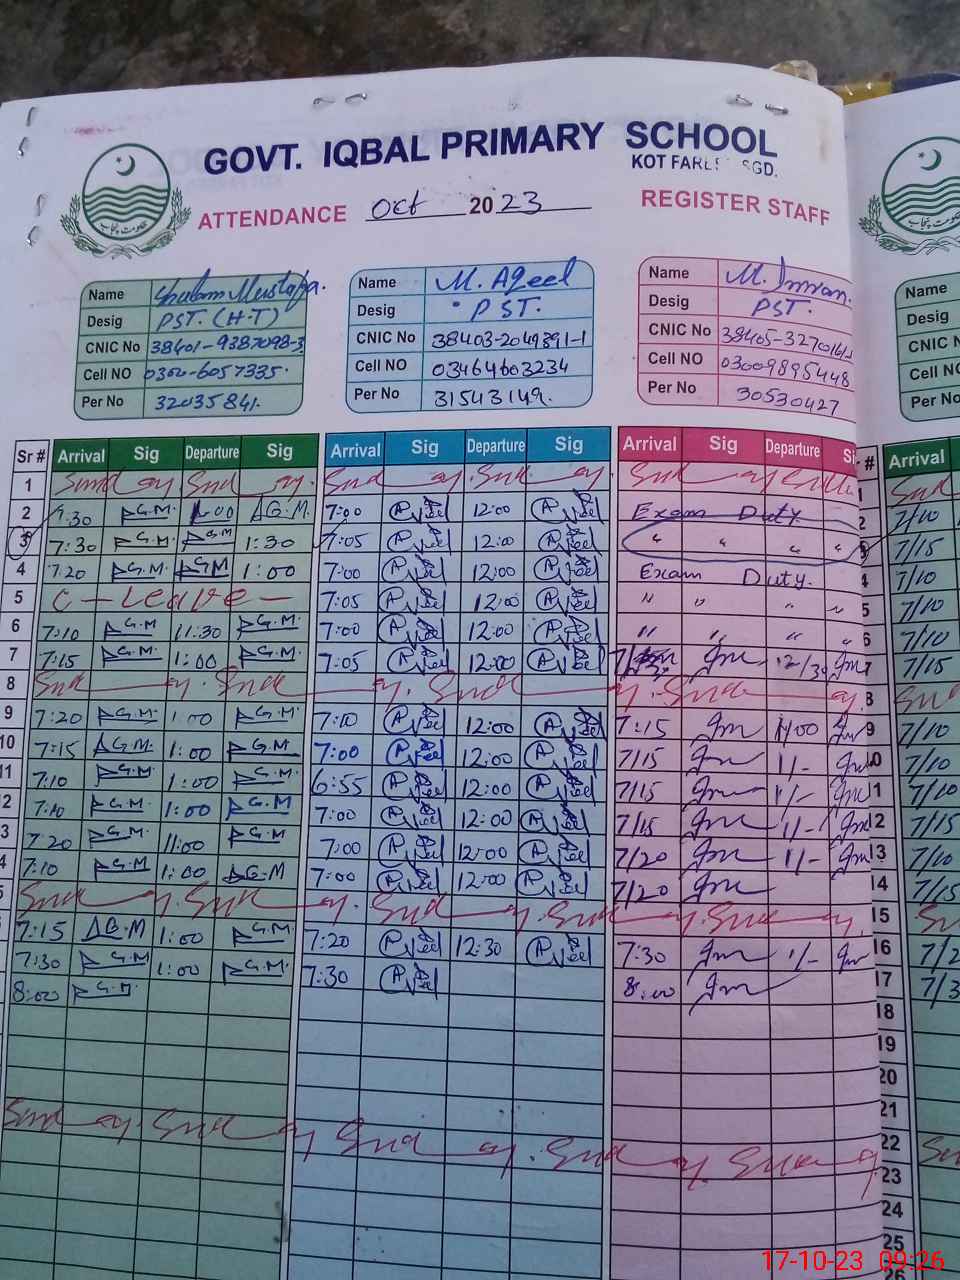 GOVT. IQBAL PRIMARY SCHOOL
KOT FARI SGD.
حکومت پنجاب
ATTENDANCE Oct 2023 REGISTER STAFF
Name Ghulam Mustafa. Name M. Aqeel Name M. Imran.
Desig PST. (H.T) Desig PST. Desig PST.
CNIC No 38401-9387098-3 CNIC No 38403-2049391-1 CNIC No
Cell NO 0300-6057335. Cell NO 03464603234 Cell NO 03009895448
Per No 32035841. Per No 31543149. Per No 30530427
Name
Desig
CNIC
Cell NO
Per No
Sr # Arrival Sig Departure Sig Arrival Sig Departure Sig Arrival Sig Departure Si # Arrival
1 Sunday Sunday. Sunday. Sunday. Sunday 1
2 7:30 G.M 1:00 G.M. 7:00 Aqeel 12:00 Aqeel Exam Duty 2 7/10
3 7:30 G.M. GM 1:30 7:05 Aqeel 12:00 Aqeel " " " " 7/15
4 7:20 G.M. GM 1:00 7:00 Aqeel 12:00 Aqeel Exam Duty. 4 7/10
5 C-Leave- 7:05 Aqeel 12:00 Aqeel " " " " 5 7/10
6 7:10 G.M 11:30 G.M. 7:00 Aqeel 12:00 Aqeel " " " " 6 7/10
7 7:15 G.M. 1:00 G.M. 7:05 Aqeel 12:00 Aqeel Im 12/30 Im 7 7/15
8 Sunday. Sunday. Sunday. Sunday. 8
9 7:20 G.M. 1:00 G.M. 7:10 Aqeel 12:00 Aqeel 7:15 Im 1/00 Im 9 7/10
10 7:15 G.M. 1:00 G.M. 7:00 Aqeel 12:00 Aqeel 7/15 Im 1/- Im 10 7/10
11 7:10 G.M. 1:00 G.M. 6:55 Aqeel 12:00 Aqeel 7/15 Im 1/- Im 11 7/10
2 7:10 G.M. 1:00 G.M 7:00 Aqeel 12:00 Aqeel 7/15 Im 1/- Im 12 7/15
3 7:20 G.M. 11:00 G.M 7:00 Aqeel 12:00 Aqeel 7/20 Im 1/- Im 13 7/10
4 7:10 G.M. 1:00 G.M 7:00 Aqeel 12:00 Aqeel 7/20 Im 14 7/15
5 Sunday. Sunday. Sunday. Sunday. Sunday. 15
7:15 G.M 1:00 G.M. 7:20 Aqeel 12:30 Aqeel 7:30 Im 1/- Im 16 7/2
7:30 G.M. 1:00 G.M. 7:30 Aqeel 8:00 Im 17 7/3
8:00 G.M.
18
19
20
21
Sunday. Sunday Sunday. Sunday. Sunday 22
23
24
25
17-10-23 09:26